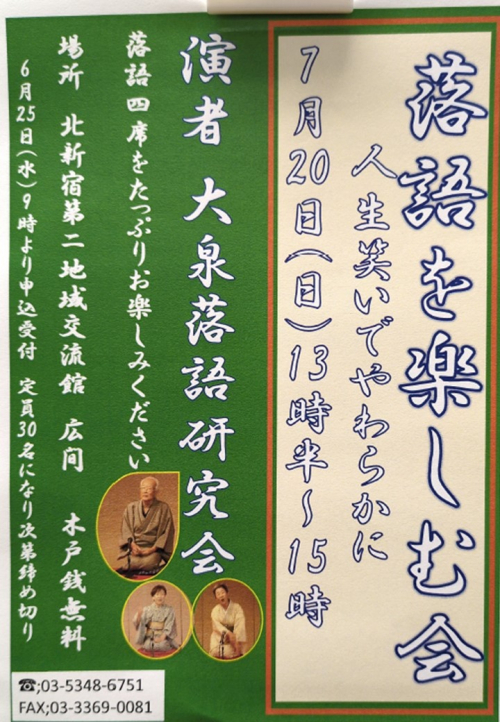 落語を楽しむ会
人生笑いでやわらかに
7月20日(日)13時半～15時
演者 大泉落語研究会
落語四席をたっぷりお楽しみください
場所 北新宿第二地域交流館 広間 木戸銭無料
6月25日(水)9時より申込受付 定員30名になり次第締め切り
☎;03-5348-6751
FAX;03-3369-0081